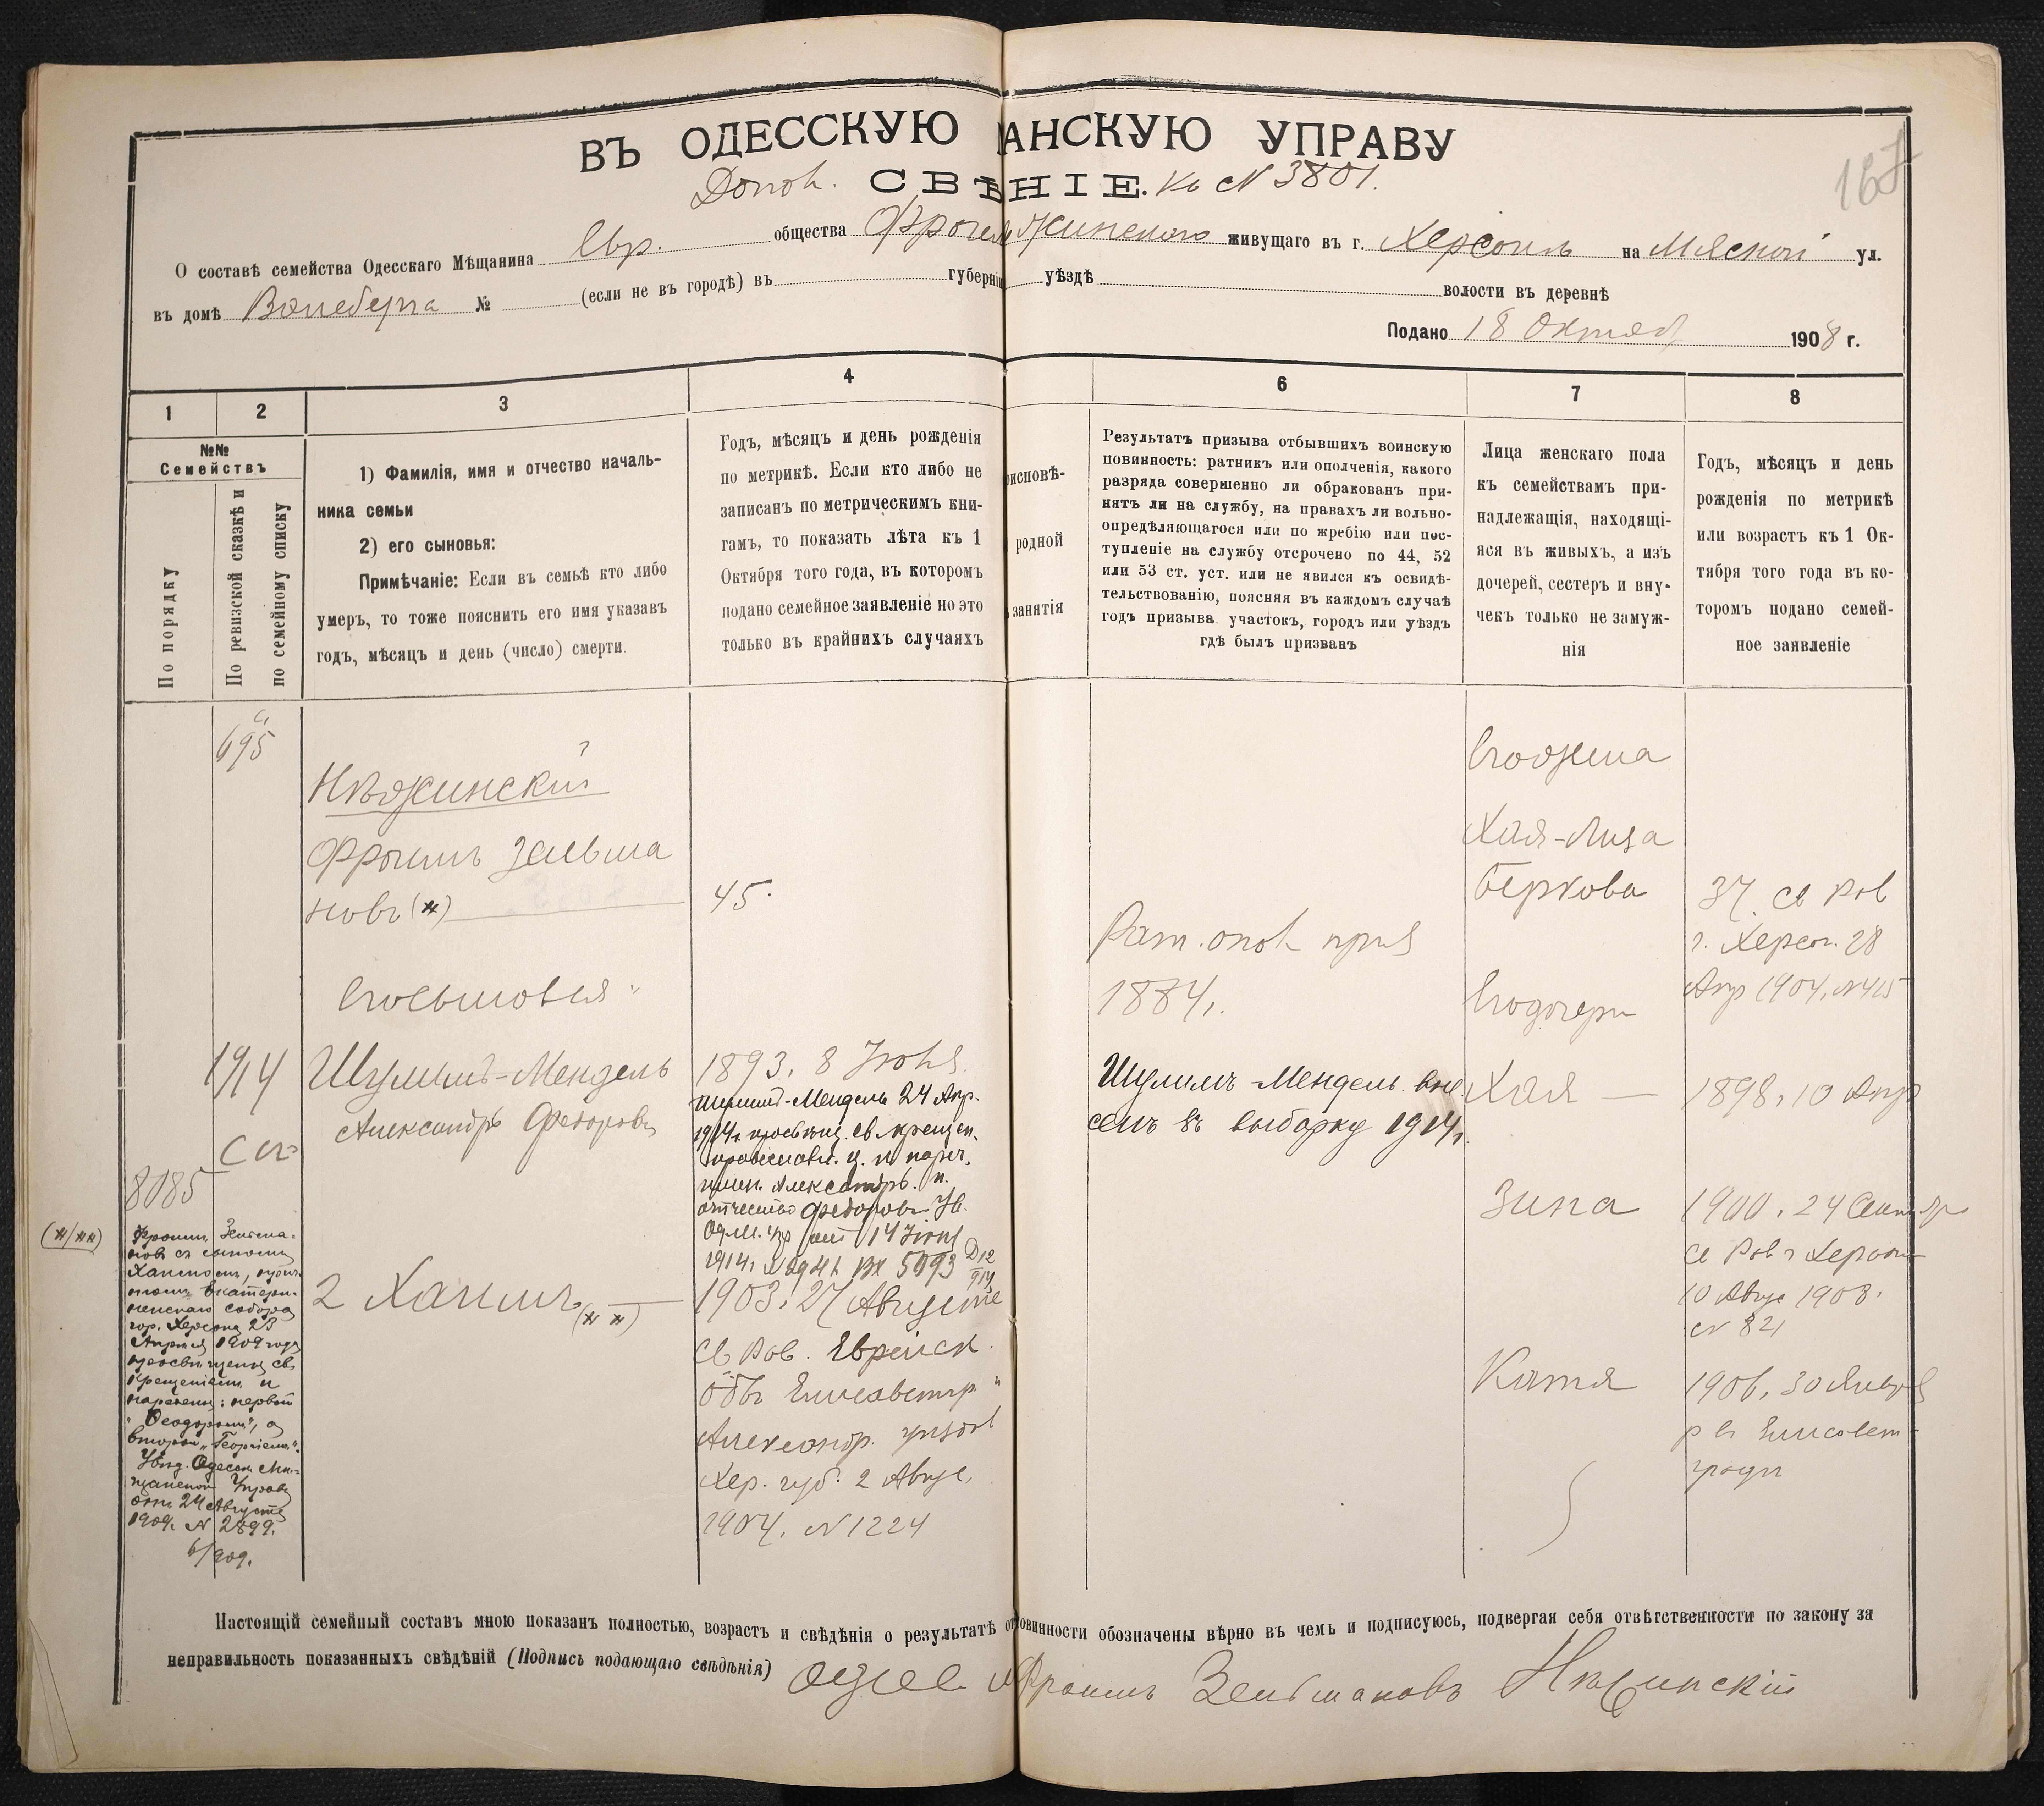 ВЪ ОДЕССКУЮ АНСКУЮ УПРАВУ
Допол. СВѢНІЕ. Къ № 3801.
167
О составѣ семейства Одесскаго Мѣщанина Евр. общества живущаго въ г. Херсонъ на Мясной ул.
въ домѣ № (если не въ городѣ) въ губерніи уѣздѣ волости въ деревнѣ
Подано 18 Октяб 1908 г.
1
2
3
4
6
7
8
№№
Семействъ
По порядку
По ревизской сказкѣ и
по семейному списку
1) Фамилія, имя и отчество началь-
ника семьи
2) его сыновья:
Примѣчаніе: Если въ семьѣ кто либо
умеръ, то тоже пояснить его имя указавъ
годъ, мѣсяцъ и день (число) смерти.
Годъ, мѣсяцъ и день рожденія
по метрикѣ. Если кто либо не
записанъ по метрическимъ кни-
гамъ, то показать лѣта къ 1
Октября того года, въ которомъ
подано семейное заявленіе но это
только въ крайнихъ случаяхъ
оисповѣ-
родной
занятія
Результатъ призыва отбывшихъ воинскую
повинность: ратникъ или ополченія, какого
разряда совершенно ли обракованъ при-
нятъ ли на службу, на правахъ ли вольно-
опредѣляющагося или по жребію или пос-
тупленіе на службу отсрочено по 44, 52
или 53 ст. уст. или не явился къ освидѣ-
тельствованію, поясняя въ каждомъ случаѣ
годъ призыва участокъ, городъ или уѣздъ
гдѣ былъ призванъ
Лица женскаго пола
къ семействамъ при-
надлежащія, находящі-
яся въ живыхъ, а изъ
дочерей, сестеръ и вну-
чекъ только не замуж-
нія
Годъ, мѣсяцъ и день
рожденія по метрикѣ
или возрастъ къ 1 Ок-
тября того года въ ко-
торомъ подано семей-
ное заявленіе
695
Нѣжинскій
Фроимъ Зельма
новъ (*)
45.
Его сыновья
1914
Шулимъ-Мендель
Александръ Федоровъ
8085
2 Хаимъ (**)
1893, 8 Іюня
Шулимъ-Мендель 24 Апр.
1914 г. просвѣщ. св. крещен.
православн. ц. и нареч.
имен. Александръ. п.
отчество Федоровъ Ув.
14 Іюня
1914 г. Вх 5093
1903. 27 Августа
св Рав. Еврейск.
общ Елисаветгр.
Александр. уѣзда
Хер. губ. 2 Авгус.
1904. № 1224
Рат. опол приз
1884 г.
Шулимъ-Мендель вне
сенъ въ выборку 1914 г.
Его жена
Хая-Лиза
Беркова
37. св Рав
г. Херсон. 28
Апр 1904. № 415
Его дочери
Хая
1898. 10 Апр
Зина
1900. 24 Сентябр
св Рав г Херсон
10 Авгус 1908.
№ 821
Катя
1906. 30 Января
р въ Елисавет-
градѣ
(*/**)
Фроимъ Зельма-
новъ съ сыномъ
Хаимомъ,
Екатери-
ненскаго собора
гор. Херсона 23
Апреля 1909 года
просвѣщены св.
крещеніемъ и
наречены: первый
"Феодоромъ", а
второй "Георгіемъ".
Увѣд. Одесск. Мѣ-
щанской Управы
отъ 24 Августа
1909 г. № 2899.
6/909.
Настоящій семейный составъ мною показанъ полностью, возрастъ и свѣдѣнія о результатѣ от овинности обозначены вѣрно въ чемъ и подписуюсь, подвергая себя отвѣтственности по закону за
неправильность показанныхъ свѣдѣній (Подпись подающаго свѣдѣнія) Фроимъ Зельмановъ Нѣжинскій